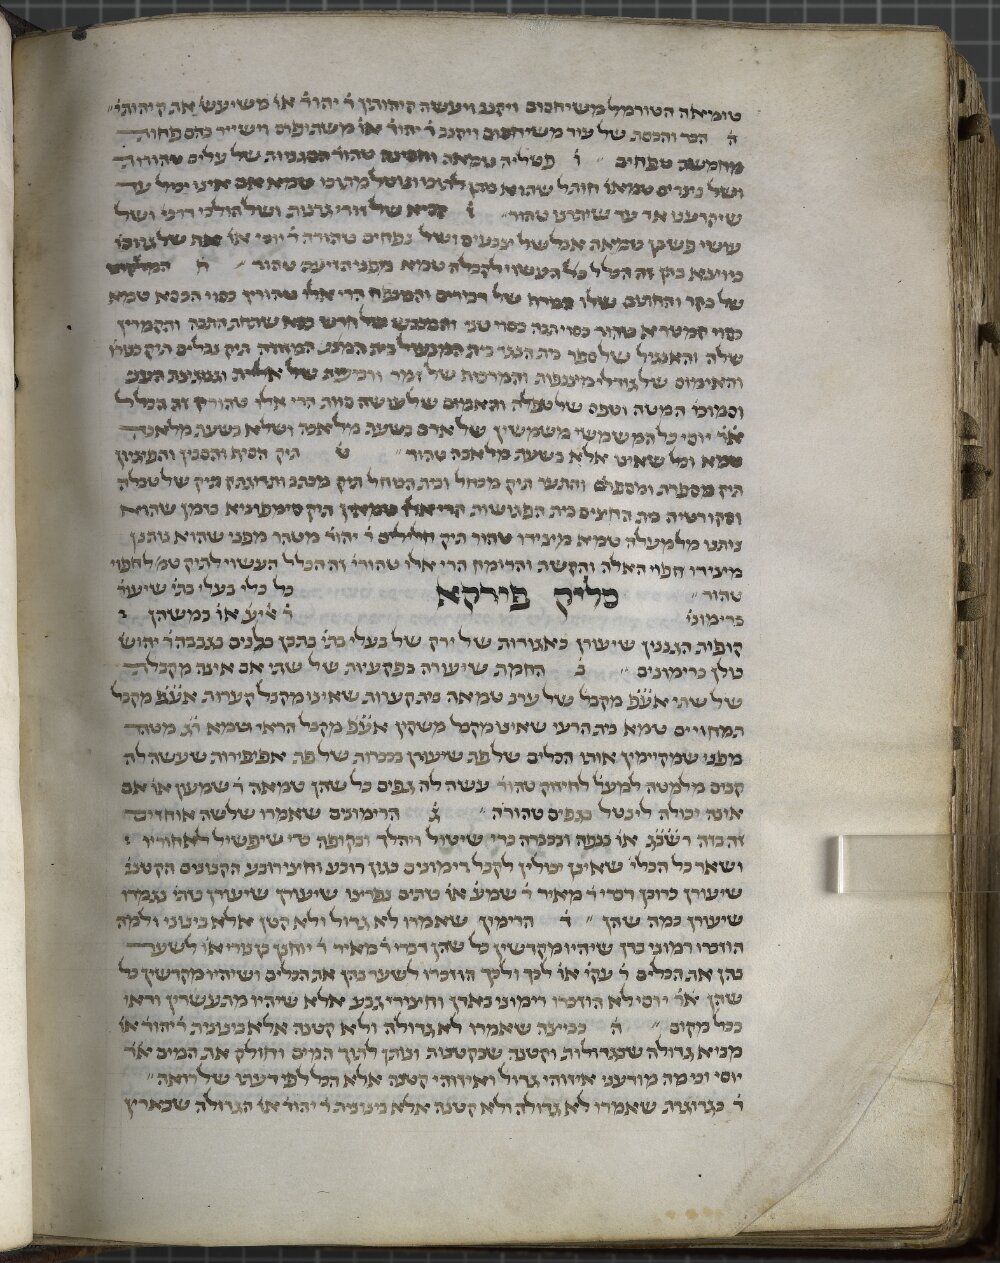 טומיאה הטורמל משיחסום ויקנב ויעשה קיהותיו ר׳ יהוד׳ או׳ משיעש׳ את קיהותי׳
ה׳ הכר והכסת של עור משיחסום ויקנב ר׳ יהוד׳ או׳ משתופרם וישייר בהם פחות
מחמשה טפחים ו׳ פטליה טמאה וחסינה טהור׳ הסגניות של עלים טהורות
ושל נצרים טמאו׳ חותל שהוא נותן לתוכו ונוטל מתוכו טמא אם אינו יכול עד
שיקרענו או עד שיתירנו טהור׳ ז׳ קסיא של זורי גרנות ושל הולכי דרכי׳ ושל
עושי פשתן טמאה אבל של צבעים ושל נפחים טהורה ר׳ יוסי או׳ אף של גרוסו׳
כיוצא בהן זה הכלל כל העשוי לקבלה טמא מפני הזיעה טהור׳ ח׳ המלקוש
של בקר והחוסם שלו המדף של דבורים והמנפה הרי אלו טהורין כסוי הכפסא טמא
כסוי קמטרא טהור׳ כסוי תבה כסוי טני והמכבש של חרש כסא שתחת התבה והקמרון
שלה והאנגיל של ספר בית הנגר בית המנעול בית המזוזה תיק נבלים תיק כנורו׳
והאימום של גודלי מיצנפות והמרכוף של זמר ורביעית של אילית וגנוגנית העני
וסמוכו׳ המטה וטפס של תפלה והאמום של עושה סוות הרי אלו טהורין זה הכלל
א״ר יוסי כל המשמשי משמשין של אדם בשעת מלאכה ושלא בשעת מלאכה
טמא וכל שאינו אלא בשעת מלאכה טהור׳ ט׳ תיק הסיף והסכין והפיגיון
תיק מספרת ומספרים והתער תיק מכחול ובית הכוחל תיק מכתב ותרונתק תיק של טבלה
וסקורטיה בית החיצים בית הפגושות הרי אלו טמאין תיק סימפוניא בזמן שהוא
נותנו מלמעלה טמא מיצידו טהור תיק חלילים ר׳ יהוד׳ מטהר מפני שהוא נותנן
מיצידו חפוי האלה והקשת והרומח הרי אלו טהורי׳ זה הכלל העשוי לתיק טמ׳ לחפוי
טהור׳ סליק פירקא כל כלי בעלי בתי׳ שיעור׳
כרימוני׳ ר׳ אליע׳ או׳ כמשהן ב׳
קופות הגננין שיעורן כאגורות של ירק של בעלי בתי׳ בתבן בלנים בגבבה ר׳ יהוש׳
כולן כרימונים ב׳ החמת שיעורה כפקעיות של שתי אם אינה מקבלת
של שתי אע״פ מקבל׳ של ערב טמאה בית קערות שאינו מקבל קערות אע״פ מקבל
תמחויים טמא בית הרעי שאינו מקבל משקין אע״פ מקבל הראי טמא ר״ג מטהר
מפני שמקיימין אותו הכלים של פת שיעורן ככרות של פת אפופירות שעשה לה
קנים מלמטה למעל׳ לחיזוק טהור׳ עשה לה גפים כל שהן טמאה ר׳ שמעון או׳ אם
אינה יכולה לינטל בגפים טהורה׳ ג׳ הרימונים שאמרו שלשה אוחזין
זה בזה רשב״ג או׳ בנפה ובכברה כדי שיטול ויהלך ובקופה כדי שיפשיל לאחוריו
ושאר כל הכלי׳ שאינן יכולין לקבל רימונים כגון רובע וחצי רובע הקנונים הקטני׳
שיעורן כרובן דברי ר׳ מאיר ר׳ שמע׳ או׳ זתים נפרצו שיעורן שיעורן זתי׳ נגממו
שיעורן כמה שהן ד׳ הרימון שאמרו לא גדול ולא קטן אלא בינוני ולמה
הוזכרו רמוני בדן שיהיו מקדשין כל שהן דברי ר׳ מאיר ר׳ יוחנן בן נורי או׳ לשער
בהן את הכלים ר׳ עקי׳ או׳ לכך ולכך הוזכרו לשער בהן את הכלים ושיהיו מקדשין כל
שהן א״ר יוסי לא הוזכרו רימוני באדן וחצירי גבע אלא שיהיו מתעשרין וראו
בכל מקום ה׳ כביצה שאמרו לא גדולה ולא קטנה אלא בינונית ר׳ יהוד׳ או׳
מביא גדולה שבגדולות וקטנה שבקטנות ונותן לתוך המים וחולק את המים א״ר
יוסי וכי מה מודעני איזוהי גדול׳ ואיזוהי קטנה אלא הכל לפי דעתו של רואה׳
ו׳ כגרוגרת שאמרו לא גדולה ולא קטנה אלא בינונית ר׳ יהוד׳ או׳ הגדולה שבארץ